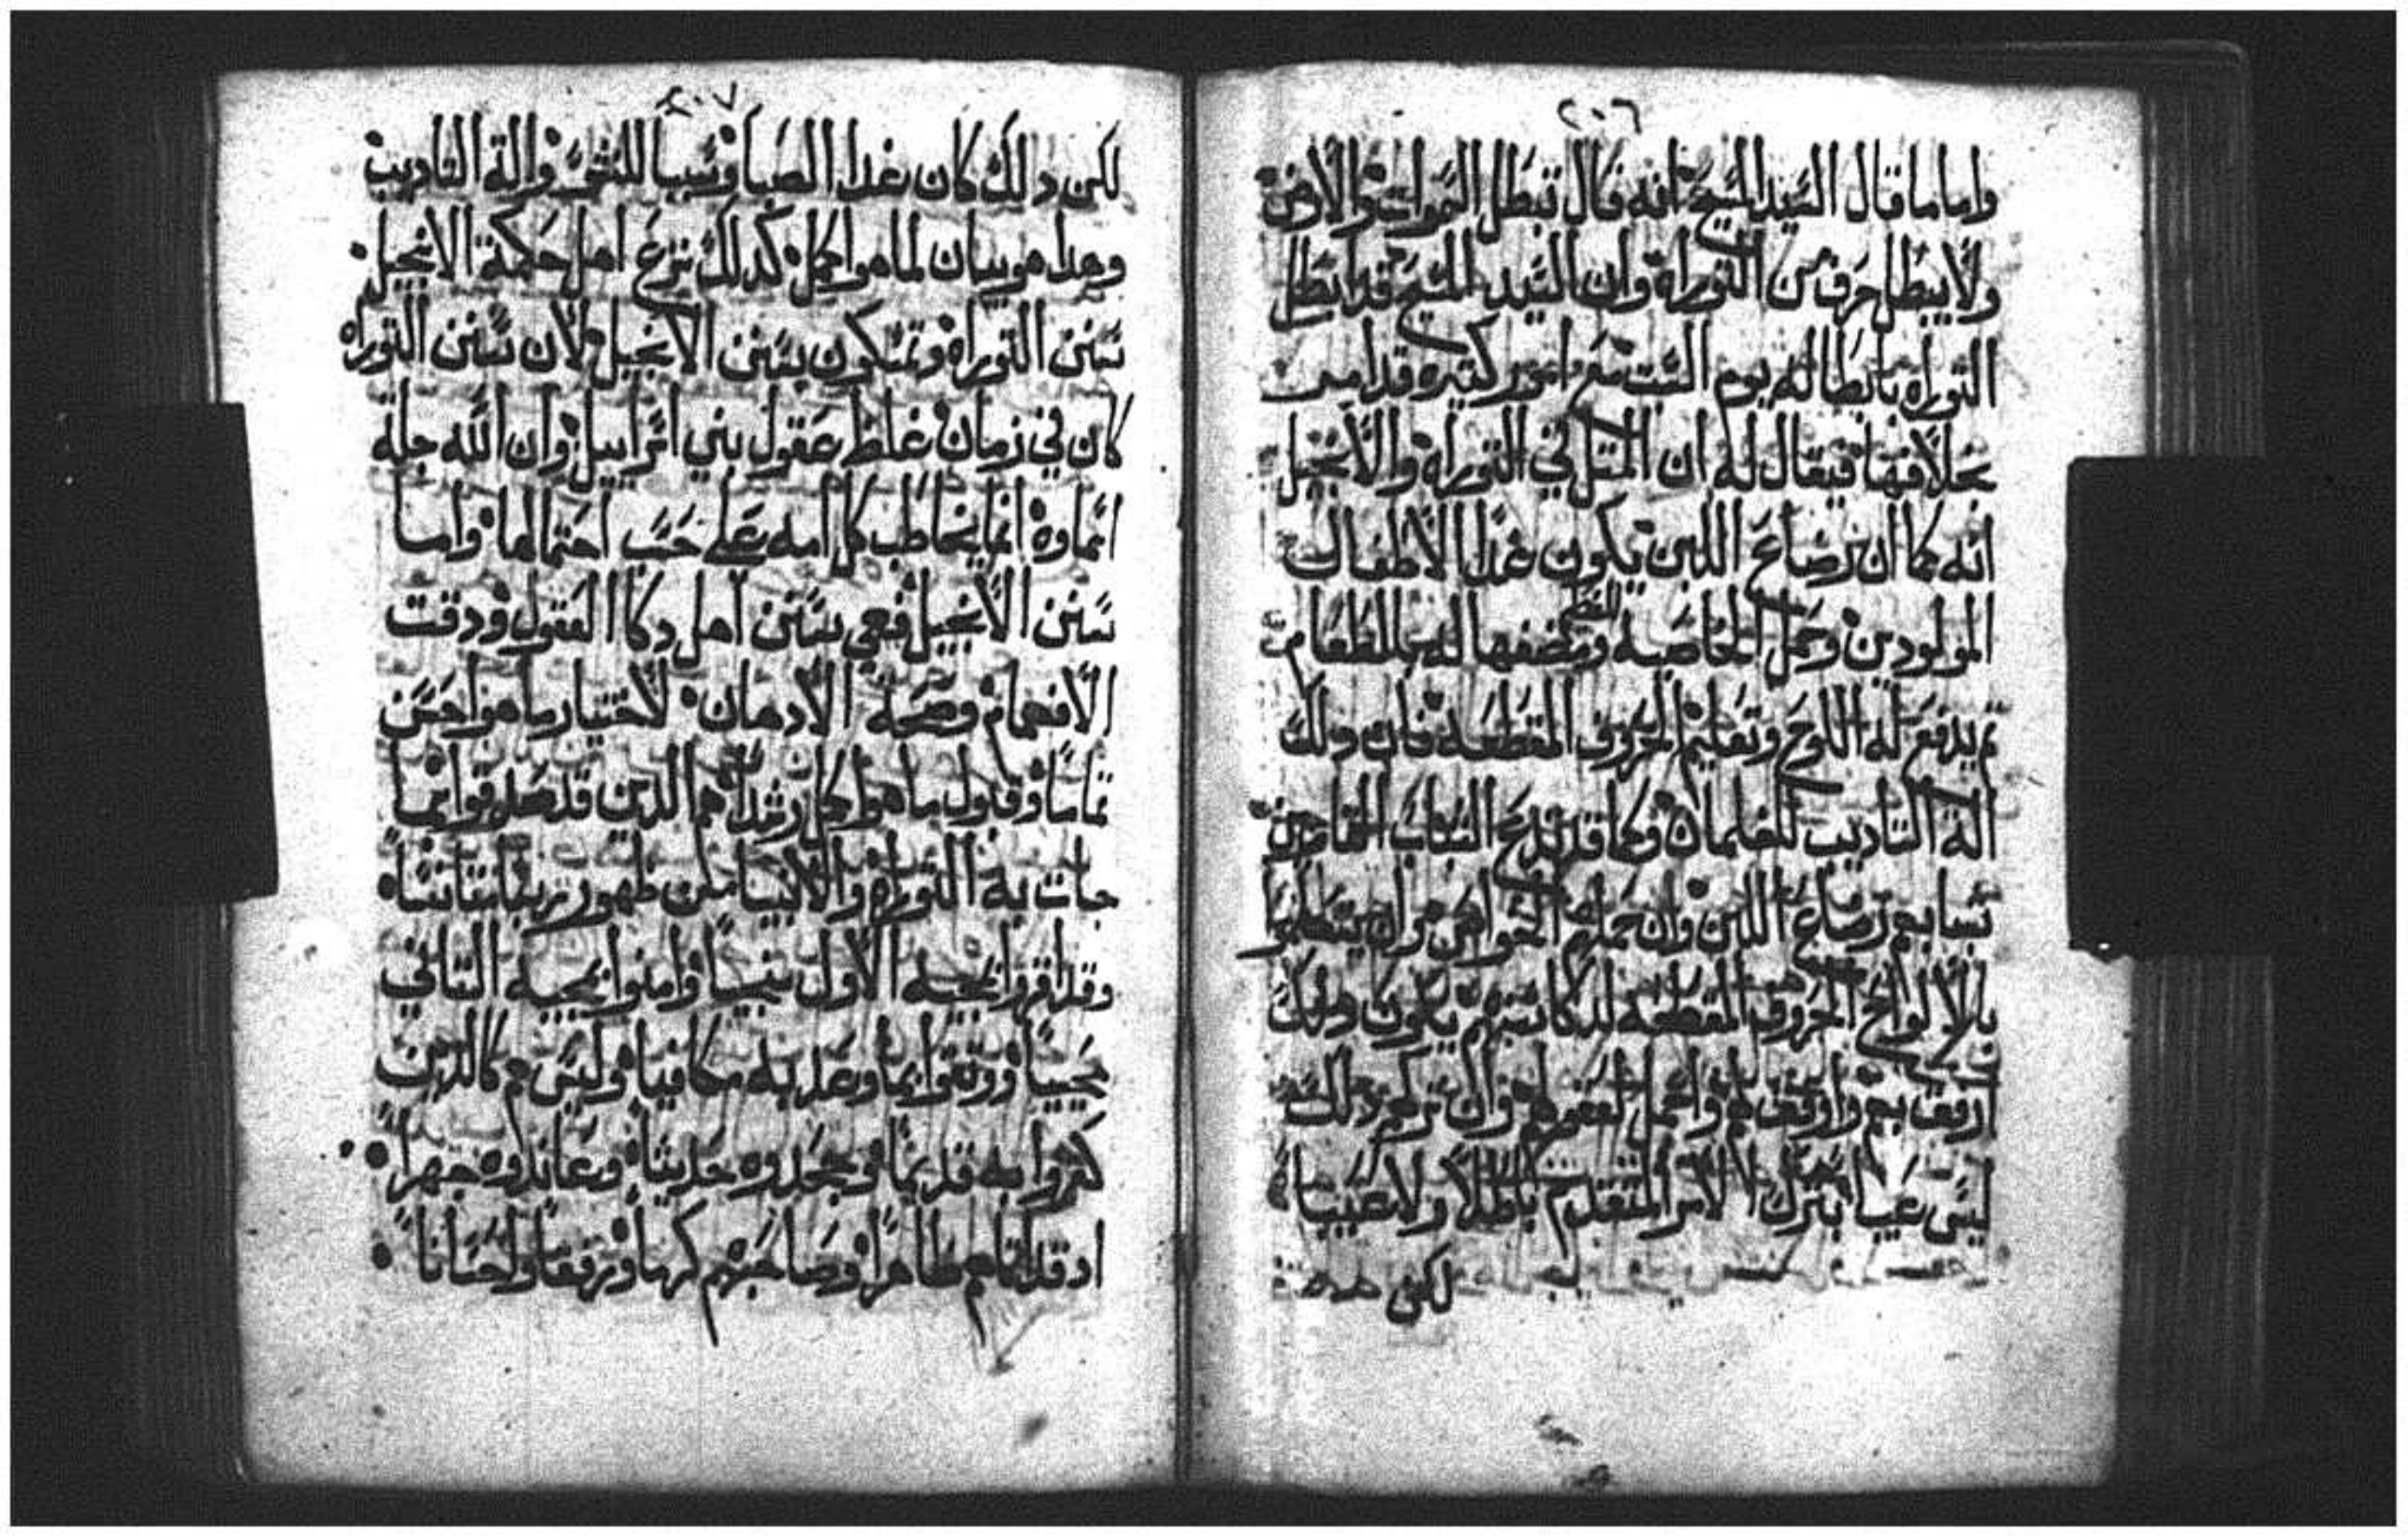 ٢٠٦
واما ما قال السيد المسيح انه قال تبطل السموات والارض
ولا يبطل حرف من التوراه وان السيد المسيح قد ابطل
التوراه بابطاله يوم السبت مع امور كتيره قد امر
بخلافها فيقال له ان المتل في التوراه والانجيل
انه كما ان رضاع اللبن يكون غدا الاطفال
المولودين وحمل الحاضنه ومضغها له الطعام
تم يدفع له اللوح وتعليم الحروف المقطعه فان دلك
الة التاديب للغلمان وكما قد
رضاع اللبن وان حملهم الحواضن وان
بالالواح الحروف المقطعه يكون دلك
ارفق بهم واوفق لهم واكمل لعقولهم وان تركهم دلك
ليس عيبا بترك الامر المتقدم باطلا ولا عيبا
لكن
٢٠٧
لكن دلك كان غدا الصبا وسببا للنشو والة التاديب
وهدا هو بيان لما هو اكمل كدلك نزع اهل حكمة الانجيل
سنن التوراه وتمسكون بسنن الانجيل لان سنن التوراه
كان في زمان غلظ عقول بني اسراييل وان الله جلة
اسماوه انما يخاطب كل امه على حسب احتمالها واما
سنن الانجيل فهي سنن اهل دكا العقول ودقت
الافهام وصحة الادهان لاختيار ما هو احسن
تماما وقبول ما هو اكمل رشدا هم الدين قد صدقوا بما
جات به التوراه والانبيا من ظهور ربنا
وقد اقروا بمجيه الاول وامنوا بمجيه التاني
محييا ووتقوا بما وعد به مكافيا وليس هم كالدين
كفروا به قديما وجحدوه حديثا وعاندوه جهرا
اد قد اتاهم ظاهرا وصاحبهم كرما وترفقا واحسانا